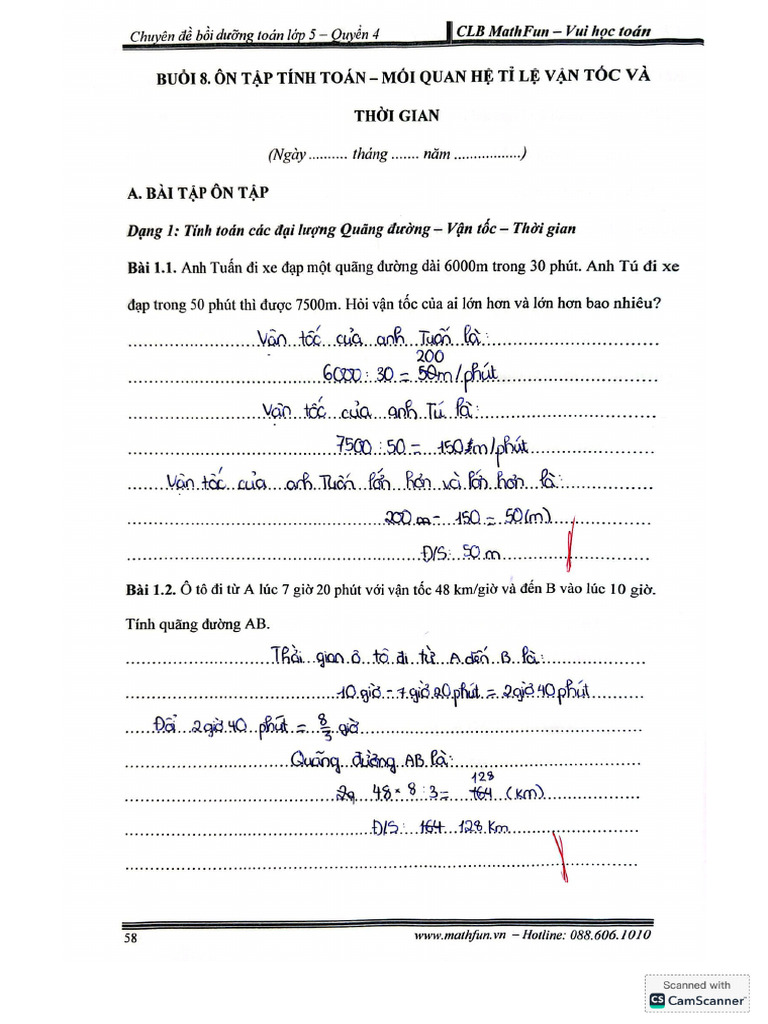 Chuyên đề bồi dưỡng toán lớp 5 – Quyển 4
CLB MathFun – Vui học toán
BUỔI 8. ÔN TẬP TÍNH TOÁN – MỐI QUAN HỆ TỈ LỆ VẬN TỐC VÀ
THỜI GIAN
(Ngày .......... tháng ....... năm .................)
A. BÀI TẬP ÔN TẬP
Dạng 1: Tính toán các đại lượng Quãng đường – Vận tốc – Thời gian
Bài 1.1. Anh Tuấn đi xe đạp một quãng đường dài 6000m trong 30 phút. Anh Tú đi xe
đạp trong 50 phút thì được 7500m. Hỏi vận tốc của ai lớn hơn và lớn hơn bao nhiêu?
Vận tốc của anh Tuấn là:
200
6000 : 30 = 50m/phút
Vận tốc của anh Tú là:
7500 : 50 = 150m/phút
Vận tốc của anh Tuấn lớn hơn và lớn hơn là:
200m - 150 = 50(m)
Đ/S: 50 m
Bài 1.2. Ô tô đi từ A lúc 7 giờ 20 phút với vận tốc 48 km/giờ và đến B vào lúc 10 giờ.
Tính quãng đường AB.
Thời gian ô tô đi từ A đến B là:
10 giờ - 7 giờ 20 phút = 2 giờ 40 phút
Đổi 2 giờ 40 phút = 8/3 giờ
Quãng đường AB là:
128
48 × 8 : 3 = 164 (km)
Đ/S: 164 128 Km
58
www.mathfun.vn – Hotline: 088.606.1010
Scanned with
CS CamScanner